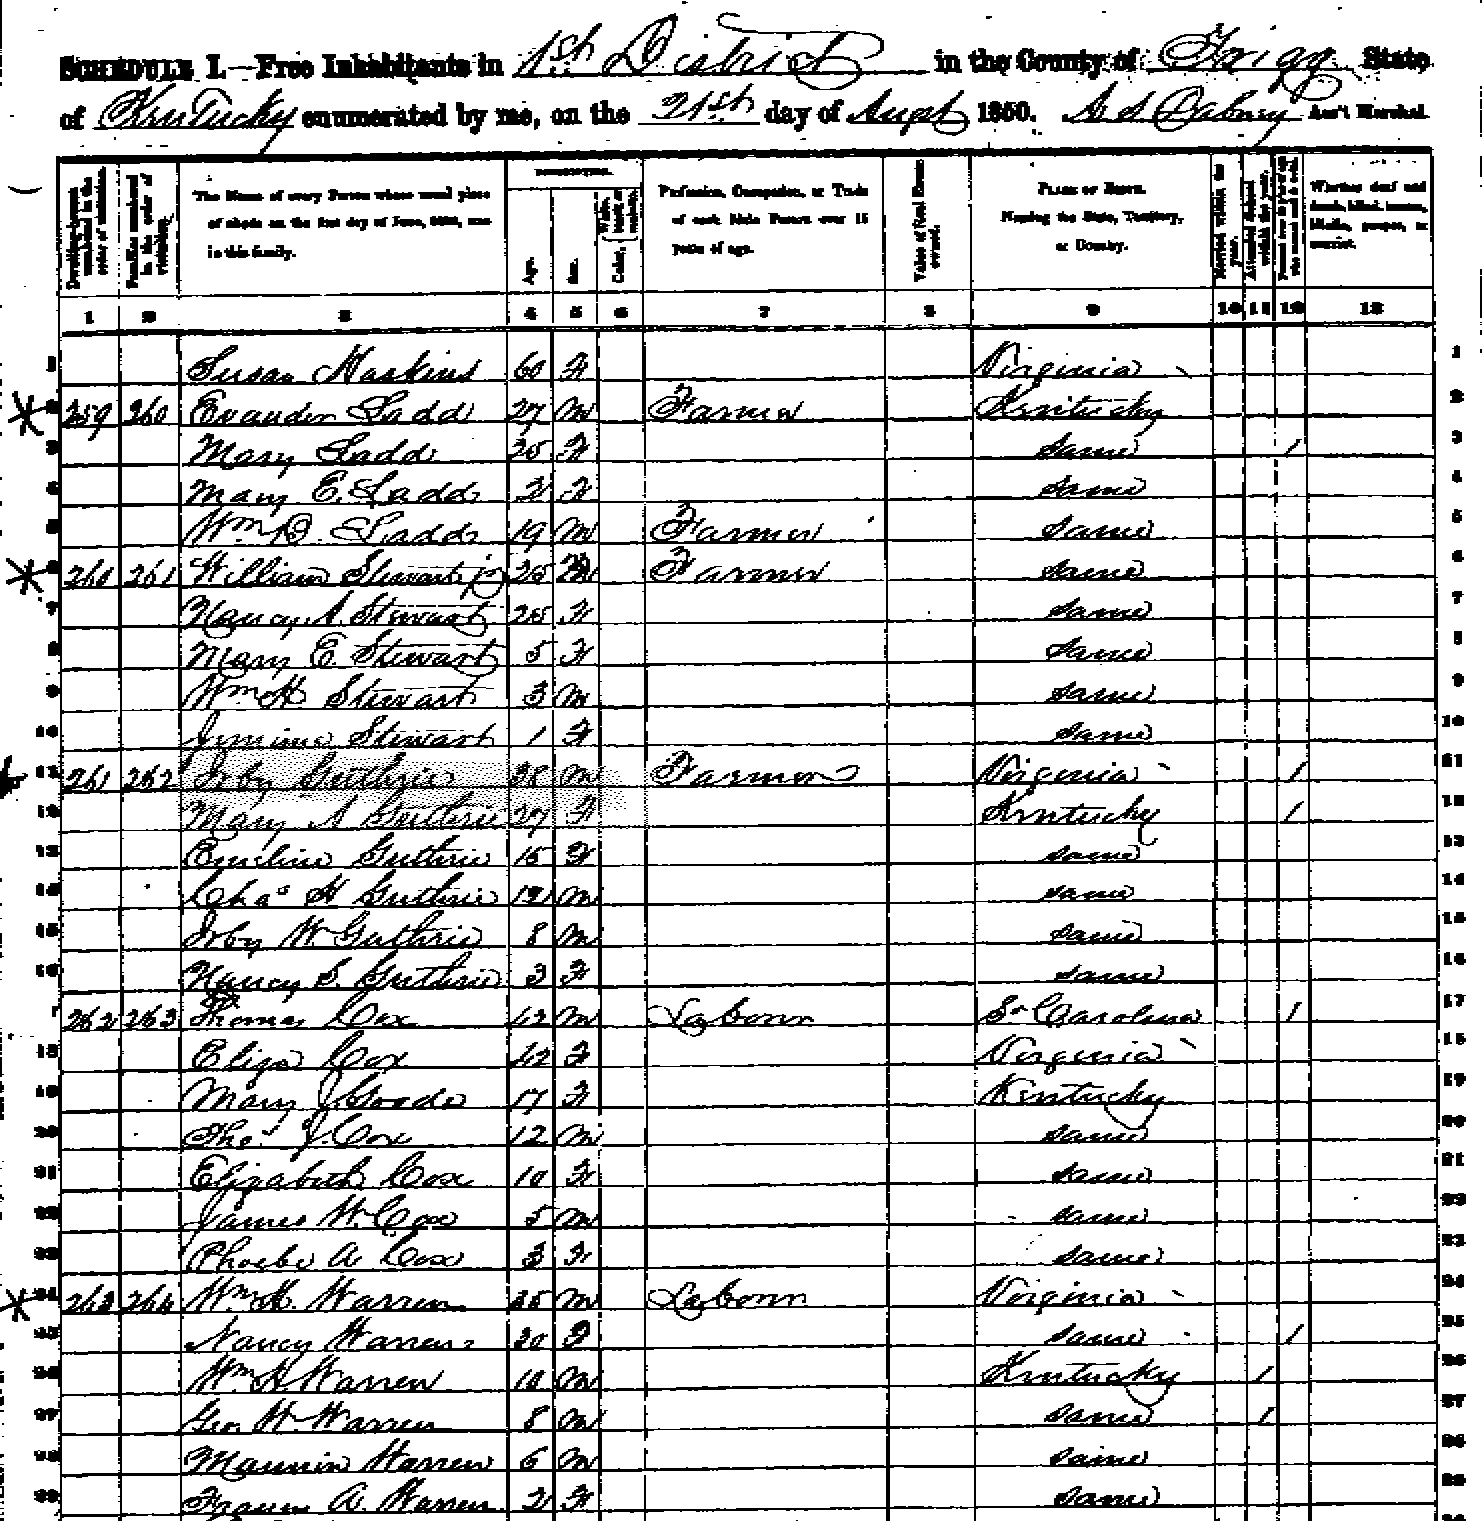 SCHEDULE I.—Free Inhabitants in 1st District in the County of Trigg State
of Kentucky enumerated by me, on the 21st day of Augt 1850. A S Dabney Ass't Marshal.
Dwelling-houses numbered in the order of visitation.
Families numbered in the order of visitation.
The Name of every Person whose usual place of abode on the first day of June, 1850, was in this family.
DESCRIPTION.
Age.
Sex.
Color, White, black, or mulatto.
Profession, Occupation, or Trade of each Male Person over 15 years of age.
Value of Real Estate owned.
PLACE OF BIRTH. Naming the State, Territory, or Country.
Married within the year.
Attended School within the year.
Persons over 20 y'rs of age who cannot read & write.
Whether deaf and dumb, blind, insane, idiotic, pauper, or convict.
1 2 3 4 5 6 7 8 9 10 11 12 13
1 Susan Haskins 60 F Virginia 1
2 259 260 Evander Ladd 27 M Farmer Kentucky 2
3 Mary Ladd 25 F same 1 3
4 Mary E. Ladd 2 F same 4
5 Wm D. Ladd 19 M Farmer same 5
6 260 261 William Stewart jr 25 M Farmer same 6
7 Nancy A. Stewart 25 F same 7
8 Mary E Stewart 5 F same 8
9 Wm H Stewart 3 M same 9
10 Jemima Stewart 1 F same 10
11 261 262 Irby Guthrie 38 M Farmer Virginia 1 11
12 Mary A Guthrie 27 F Kentucky 1 12
13 Emeline Guthrie 15 F same 13
14 Chas H Guthrie 12 M same 14
15 Irby W. Guthrie 8 M same 15
16 Nancy S. Guthrie 3 F same 16
262 263 Thomas Cox 42 M Labour So Carolina 1 17
18 Eliza Cox 42 F Virginia 18
19 Mary J Goode 17 F Kentucky 19
20 Thos J. Cox 12 M same 20
21 Elizabeth Cox 10 F same 21
22 James W. Cox 5 M same 22
23 Phoebe A Cox 3 F same 23
24 263 264 Wm H. Warren 35 M Labour Virginia 24
25 Nancy Warren 30 F same 1 25
26 Wm H. Warren 10 M Kentucky 1 26
27 Geo. W. Warren 8 M same 1 27
28 Warren 6 M same 28
29 A. Warren 2 F same 29